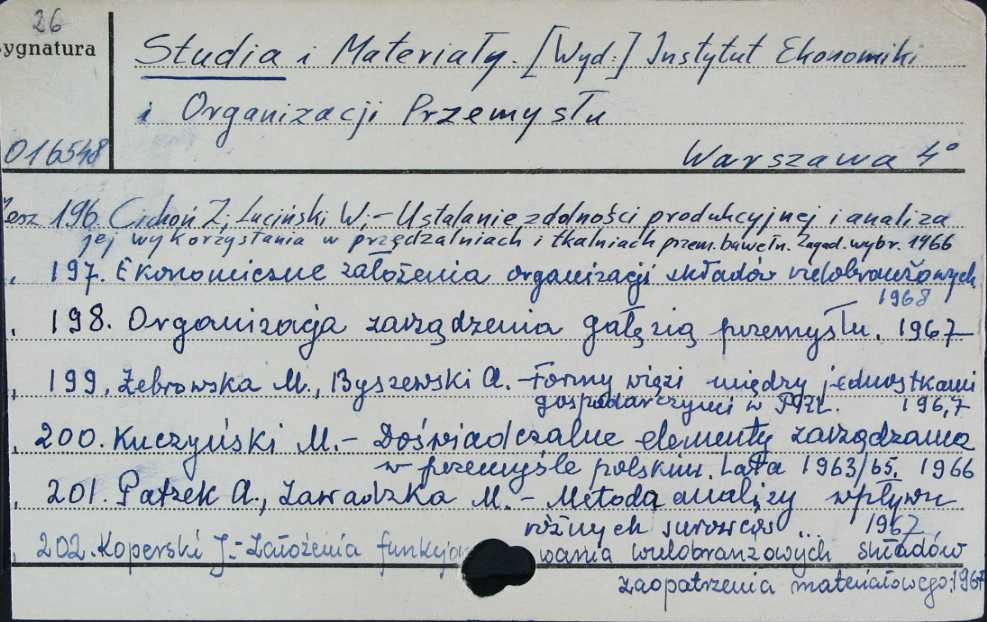 26
Sygnatura
Studia i Materiały. [Wyd:] Instytut Ekonomiki
i Organizacji Przemysłu
016548
Warszawa 4°
Zesz 196. Cichoń Z; Luciński W; - Ustalanie zdolności produkcyjnej i analiza
jej wykorzystania w przędzalniach i tkalniach przem. bawełn. Zagad. wybr. 1966
, 197. Ekonomiczne założenia organizacji składów wielobranżowych
1968
, 198. Organizacja zarządzenia gałęzią przemysłu. 1967
, 199, Żebrowska M., Byszewski A. - Formy więzi między jednostkami
gospodarczymi w 1967
, 200. Kuczyński M. - Doświadczalne elementy zarządzania
w przemyśle polskim. Lata 1963/65. 1966
, 201. Patzek A., Zawadzka M. - Metoda analizy wpływu
różnych surowców .. 1967
, 202. Koperski J. - Założenia funkcjo wania wielobranżowych składów
zaopatrzenia materiałowego. 1967